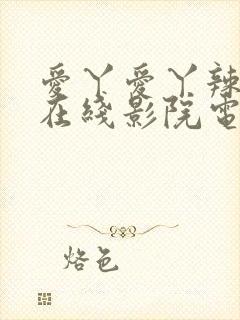 愛丫愛丫辣
在綫影院電
烙色